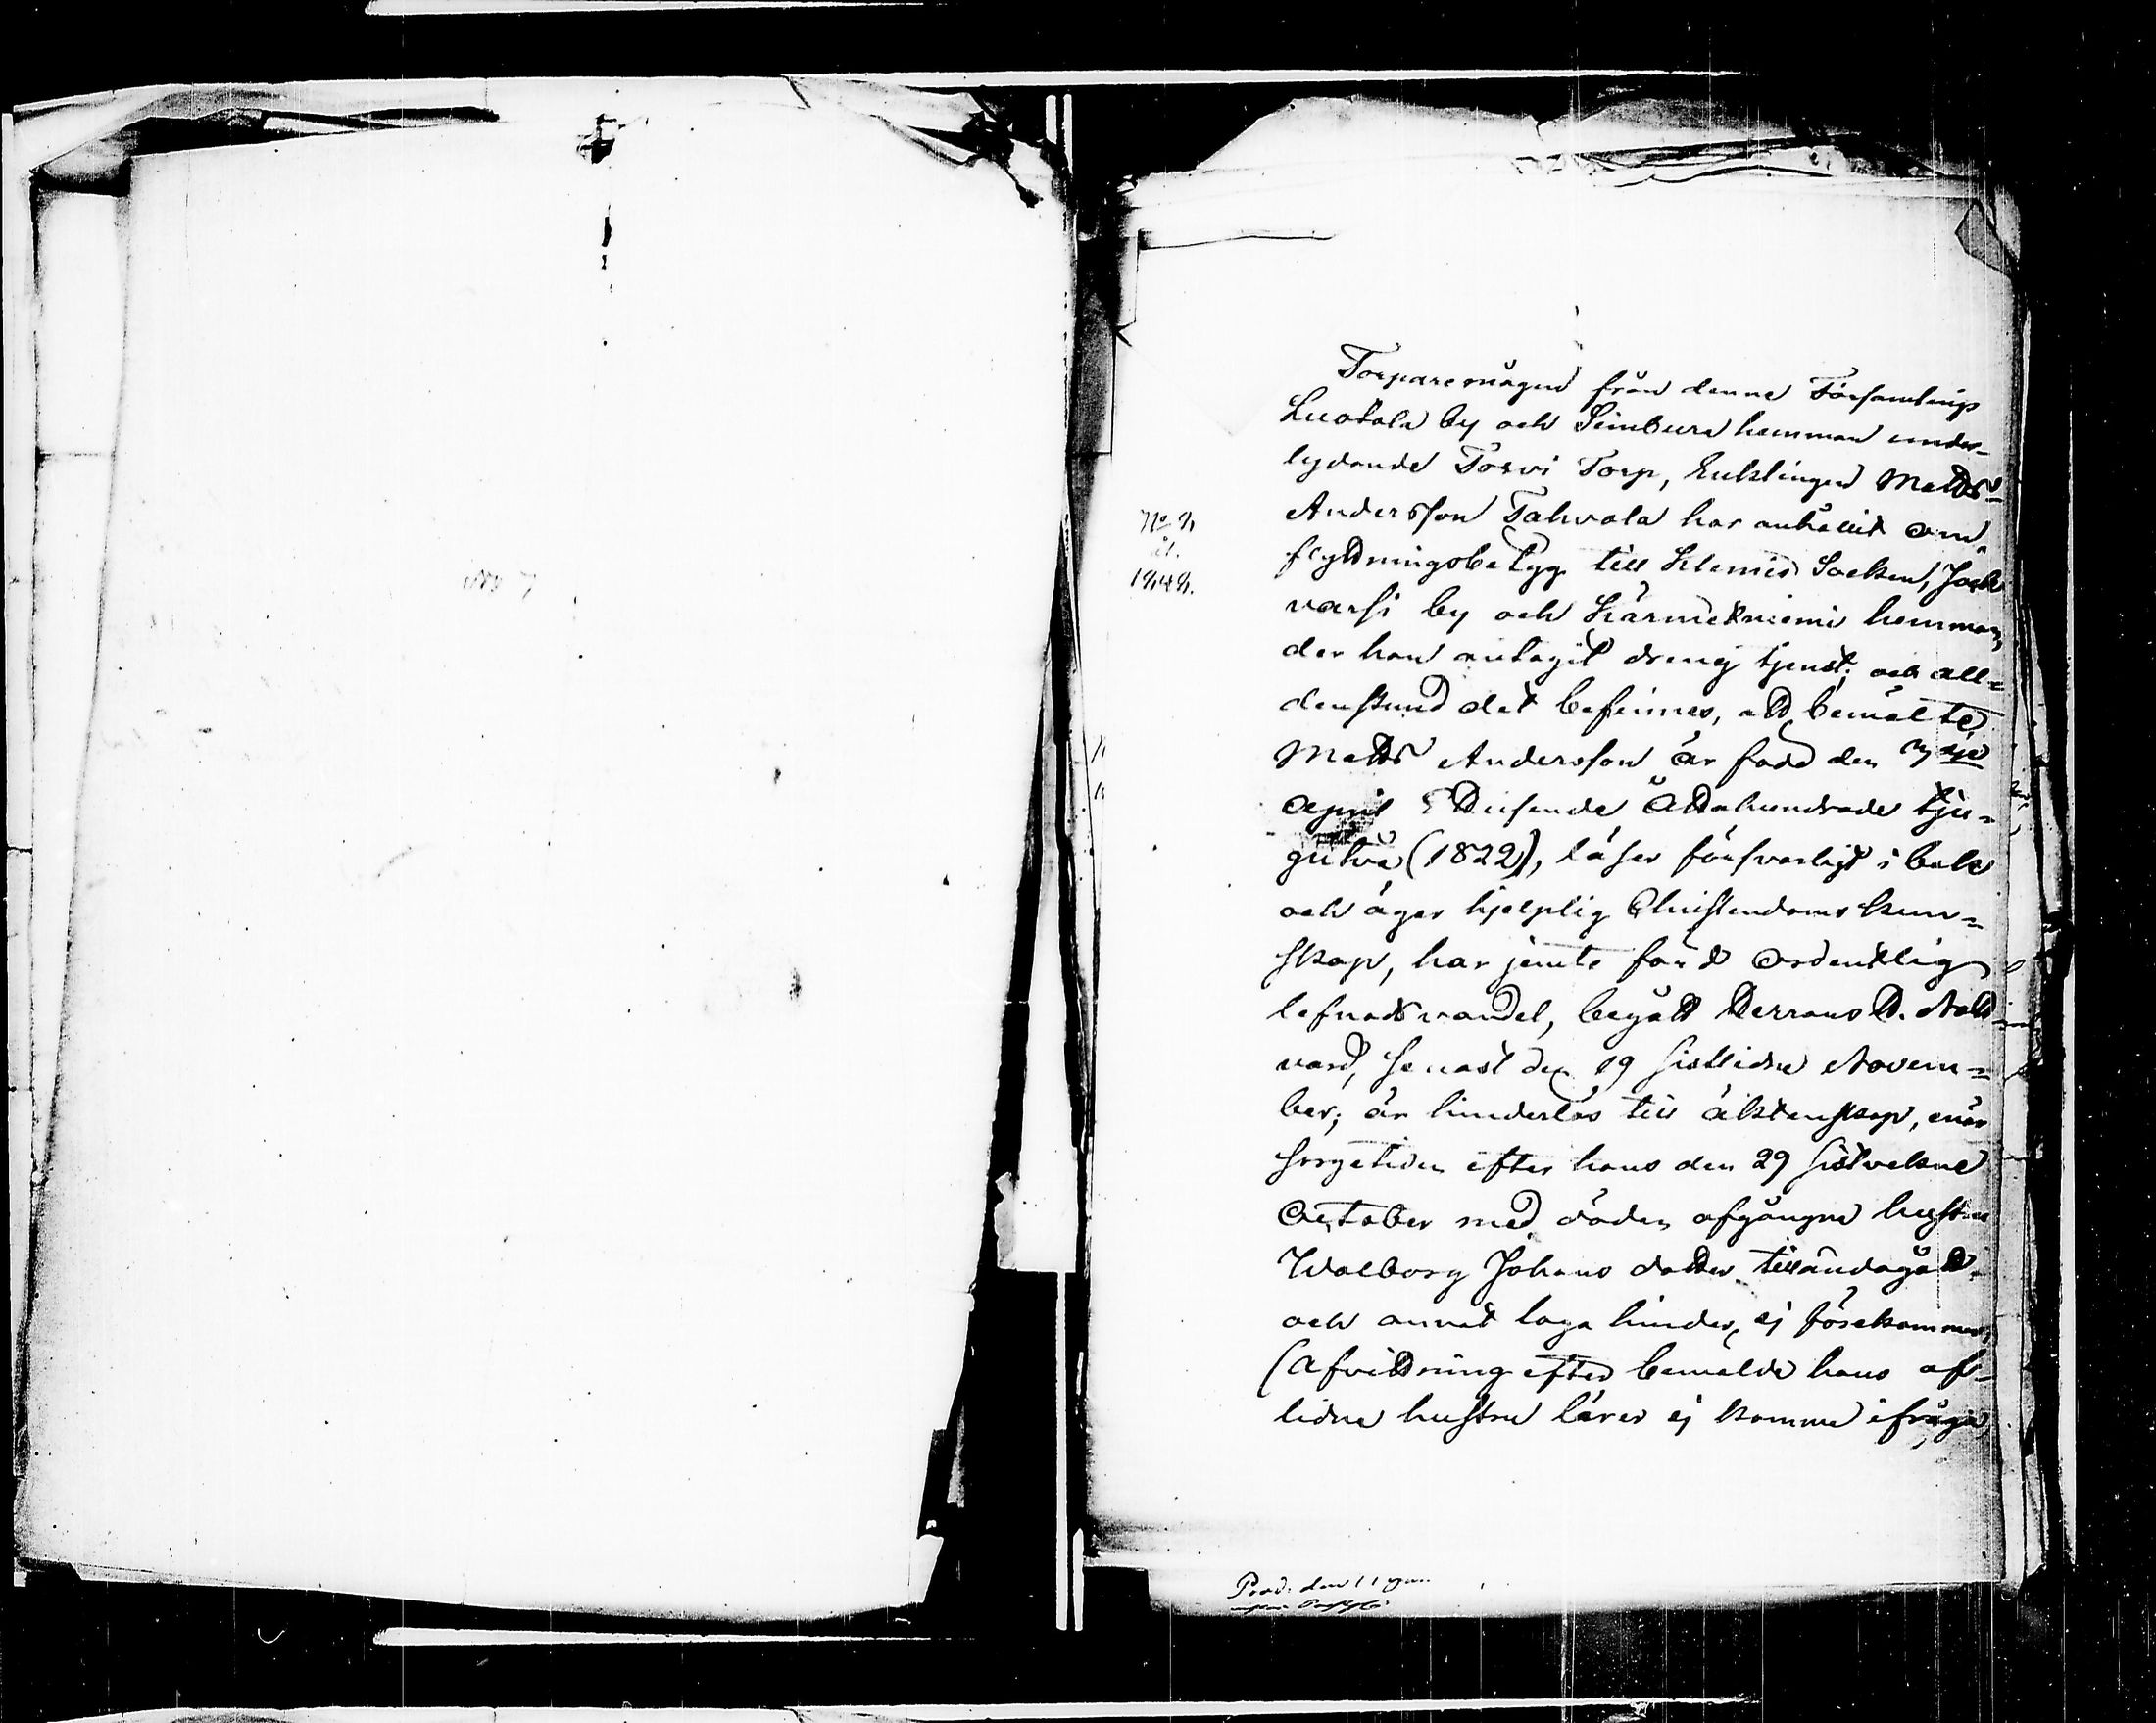 Torparemågen från denne Församlings
Luotola by och Simbura hemman under-
lydande Torvi Torp, Enklingen Matts
Andersson Tahvola har anhållit om
No 4
år
1844.
flyttningsbetyg till Klemis Socken,
varsi by och Kärmekniemi hemman,
der han antagit dreng tjenst; och all-
denstund det befinnes, att bemälte
Matts Andersson är född den
April Ettusende Åttahundrade tju-
gutvå (1822), läser försvarligt i bok
och äger hjelplig Christendoms kun-
skap, har jemte fördt ordentlig
lefnadsvandel, begått Herrans H. Natt
vard, senast den 19 sistlidne Novem-
ber; är hinderlös till äktenskap, enär
sorgetiden efter hans den 29 sistvekne
October med döden afgångne hustru
Walborg Johans dotter tilländagått
och annat laga hinder ej förekommer;
(afvittning efter bemälde hans af-
lidne hustru lärer ej komme ifråga
Prod. den 11